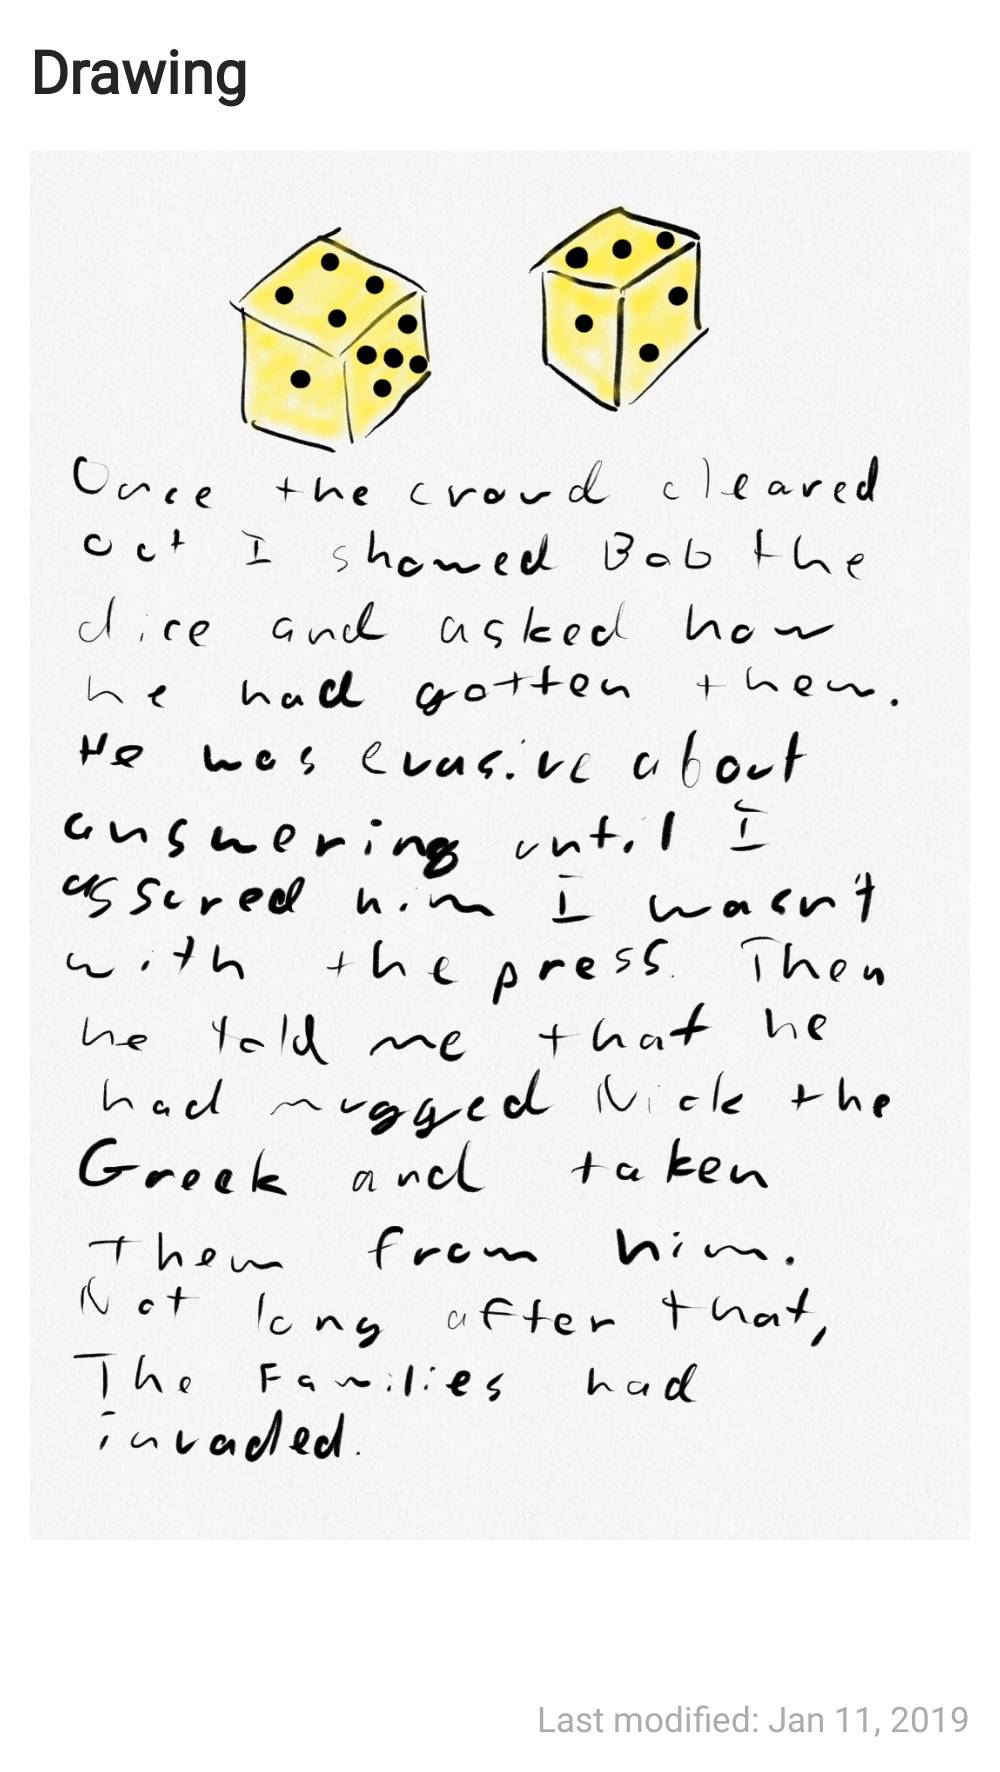 Drawing
Once the crowd cleared
out I showed Bob the
dice and asked how
he had gotten them.
He was evasive about
answering until I
assured him I wasn't
with the press. Then
he told me that he
had mugged Nick the
Greek and taken
them from him.
Not long after that,
The Families had
invaded.
Last modified: Jan 11, 2019